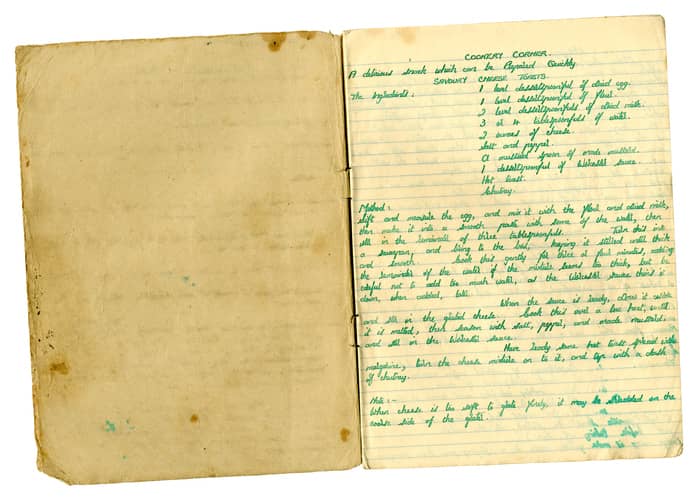 COOKERY CORNER.
A delicious snack which can be Prepared Quickly.
SAVOURY CHEESE TOASTS.
The Ingredients:
1 level dessertspoonful of dried egg.
1 level dessertspoonful of flour.
2 level dessertspoonfuls of dried milk.
3 or 4 tablespoonfuls of water.
2 ounces of cheese.
Salt and pepper.
A mustard spoon of made mustard.
1 dessertspoonful of Worcester sauce.
Hot toast.
Chutney.
Method:
Sift and measure the egg, and mix it with the flour and dried milk,
then make it into a smooth paste with some of the water, then
stir in the remainder of three tablespoonfuls. Turn this into
a saucepan, and bring to the boil, keeping it stirred until thick
and smooth. Cook this gently for three or four minutes, adding
the remainder of the water if the mixture seems too thick, but be
careful not to add too much water, as the Worcester sauce thins it
down, when added,
When the sauce is ready, draw it aside
and stir in the grated cheese. Cook this over a low heat, until
it is melted, then season with salt, pepper, and made mustard,
and stir in the Worcester sauce.
Have ready some hot toast spread with
margarine, turn the cheese mixture on to it, and top with a dash
of chutney.
Note:-
When cheese is too soft to grate finely, it may be shredded on the
coarse side of the grater.